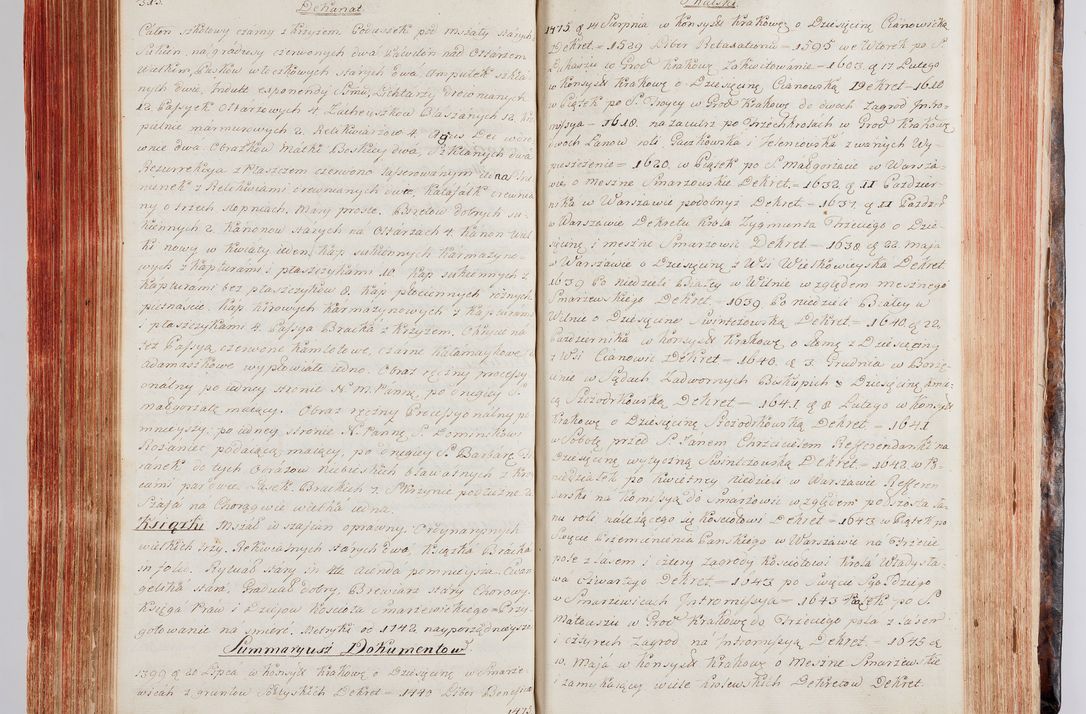 Dekanat
Całon szkotowy czarny z krzyżem Poduszek pod mszały starych
Sukien na gradusy czerwonych dwa Pawilon nad Ołtarzem
wielkim, Pasków włoczkowych starych dwa, ampułek szkla
nych dwie, Indult exponendi Lichtarzy drewnianych
12 Passyek Ołtarzowych 4 Lichtarzyszków Blaszanych 12
marmurowych 2. Relikwiarzow 4. Agnus Dei
wnie dwa. Obrazków Matki Boskiey dwa, szklannych dwa
Rezurrekcya z Płaszczem czerwono laserowanym
z Relikwiami drewnianych dwa, Katafalk drewnia
ny o trzech stopniach, Mary proste. Biretów dobrych su-
kiennych 2 Kanonow starych na Ołtarzach 4. Kanon wiel
ki nowy w kwiaty ieden, kap sukiennych karmazyno-
wych z kapturami i płaszczykami 10. kap sukiennych z
kapturami bez płaszczyków 8. kap płóciennych różnych
piętnaście. Kap kirowych karmazynowych z kapturami
i płaszczykami 4. Passya Bracka z krzyżem. Okrycie na
też Passyą czerwone kamlotowe, czarne
adamaszkowe wypłowiałe iedno. Obraz ręczny processy
onalny po iedney stronie N. M. Pannę, po drugiey S.
Małgorzatę maiący. Obraz ręczny Processyonalny po-
mnieyszy, po iedney stronie N. Pannę S. Dominikowi
Rożaniec podaiącą maiący, po drugiey S. Barbarę
do tych Obrazow niebieskich
Lasek Brackich 2. Skrzynie
na Chorągwie wielka iedna.
Książki Mszał w szafian oprawny. Ordynaryinych
wielkich trzy. Rekwialnych starych dwa, Książka Bracka
in folio. Rytuał stary in 4to Agenda pomnieysza. Ewan
gelika stara, Graduał dobry, Brewiarz stary Chorowy
Księga Praw i Dziejow Kościoła Smarzewickiego Przy-
gotowanie na śmierć. Metryki od 1742 nayporządnieysze
Summaryusz Dokumentow
1399 d 20 Lipca w konsyst krakowe o Dziesięcinę w Smarze
wicach z gruntow Sołtyskich Dekret = 1440 Liber Benefici
1475
Skalski
1475 d 14 Sierpnia w konsyst krakowe o Dziesięcinę Cianowicką
Dekret = 1529 Liber Retaxationis = 1595 we Wtorek po S
w Grod krakowe zakwitowanie = 1603 d 17 Lutego
w konsyst krakowe o Dziesięcinę Cianowską Dekret = 1610
w Piątek po S. Troycy w Grod krakowe do dwoch zagrod Intro-
missya = 1618 nazaiutrz po Trzechkrolach w Grod krakowe
dwoch Lanow roli Gaczkowska i Jelenowska zwanych Wy-
puszczenie = 1620 w Piątek po S Małgorzacie w Warsza-
wie o meszne Smarzowskie Dekret = 1632 d 11 Paździer-
nika w Warszawie podobnyż Dekret = 1637 d 11 Paździer
w Warszawie Dekretu krola Zygmunta Trzeciego o Dzie-
sięcinę i meszne Smarzowic Dekret = 1638 d 22 maja
w Warszawie o Dziesięcinę z Wsi Wielkowieyska Dekret
1639 Po niedzieli Białey w Wilnie względem mesznego
Smarzewskiego Dekret = 1639 Po niedzieli Białey w
Wilnie o Dziesięcinę Swinczowską Dekret = 1640 d 22
Pazdziernika w konsyst krakowe o słomę z Dziesięciny
z Wsi Cianowic Dekret = 1640 d 3 Grudnia w Borzę-
cinie w Sądach Zadwornych Biskupich o Dziesięcinę
Szczodrkowską Dekret = 1641 d 8 Lutego w konsyst
krakowe o Dziesięcinę Szczodrkowską Dekret = 1641
w Sobotę przed S. Janem Chrzcicielem Refferendarski na
Dziesięcinę wytyczną Swinczowską Dekret = 1642 w Po-
niedziałek po kwietney niedzieli w Warszawie Refferen
darski na komissyą do Smarzowic względem
nu roli należącego się kościołowi Dekret = 1643 w Piątek po
Swięcie Przemienienia Panskiego w Warszawie na Trzecie
pole z lasem i cztery zagrody kościołowi krola Władysła-
wa czwartego Dekret = 1643 po Święcie
w Smarzewicach Intromissya = 1643 Piątek po S.
Mateuszu w Grod krakowe do Trzeciego pola z lasem
i czterech zagrod na Intromissyą Dekret = 1645 d
10. Maja w konsyst krakowe o Meszne Smarzewskie
i zamykaiący wiele krolewskich Dekretow Dekret.